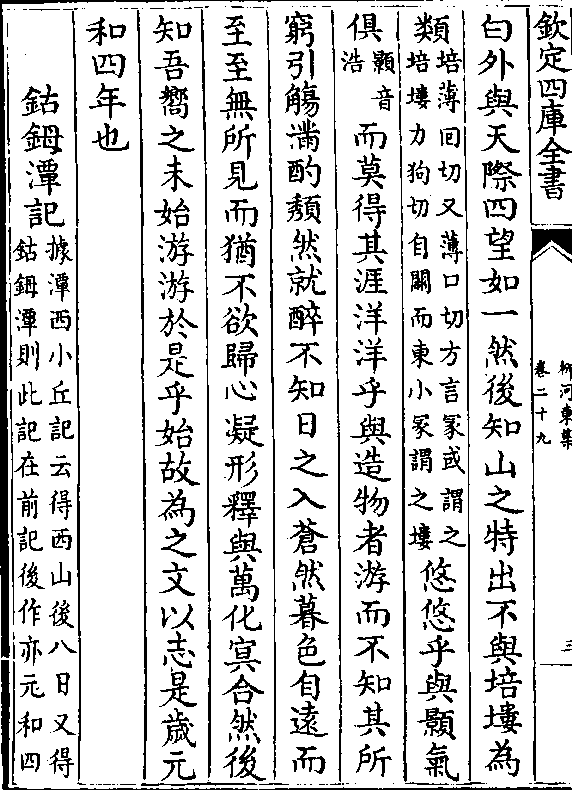 欽定四庫全書
柳河東集
卷二十九
三
白外與天際四望如一然後知山之特出不與培塿為
類培薄回切又薄口切方言冢或謂之培塿力狗切自關而東小冢謂之塿悠悠乎與顥氣
俱顥音浩而莫得其涯洋洋乎與造物者游而不知其所
窮引觴滿酌頹然就醉不知日之入蒼然暮色自遠而
至至無所見而猶不欲歸心凝形釋與萬化冥合然後
知吾嚮之未始游游於是乎始故為之文以志是歲元
和四年也
鈷鉧潭記據潭西小丘記云得西山後八日又得鈷鉧潭則此記在前記後作亦元和四